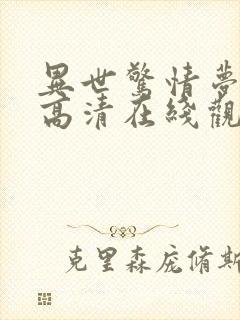 異世驚情夢
高清在綫觀
克里森庞脩斯